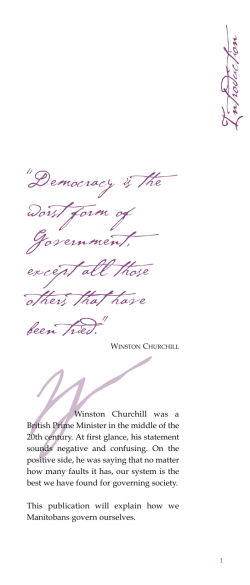 Introduction
"Democracy is the
worst form of
Government,
except all those
others that have
been tried."
WINSTON CHURCHILL
Winston Churchill was a
British Prime Minister in the middle of the
20th century. At first glance, his statement
sounds negative and confusing. On the
positive side, he was saying that no matter
how many faults it has, our system is the
best we have found for governing society.
This publication will explain how we
Manitobans govern ourselves.
1